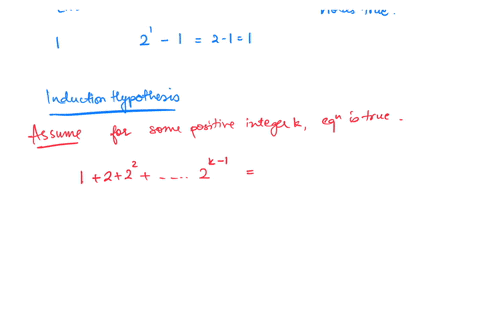 1 2^1 - 1 = 2-1=1
Induction Hypothesis
Assume for some positive integer k, eqn is true.
1 + 2 + 2^2 + ..... 2^{k-1} =